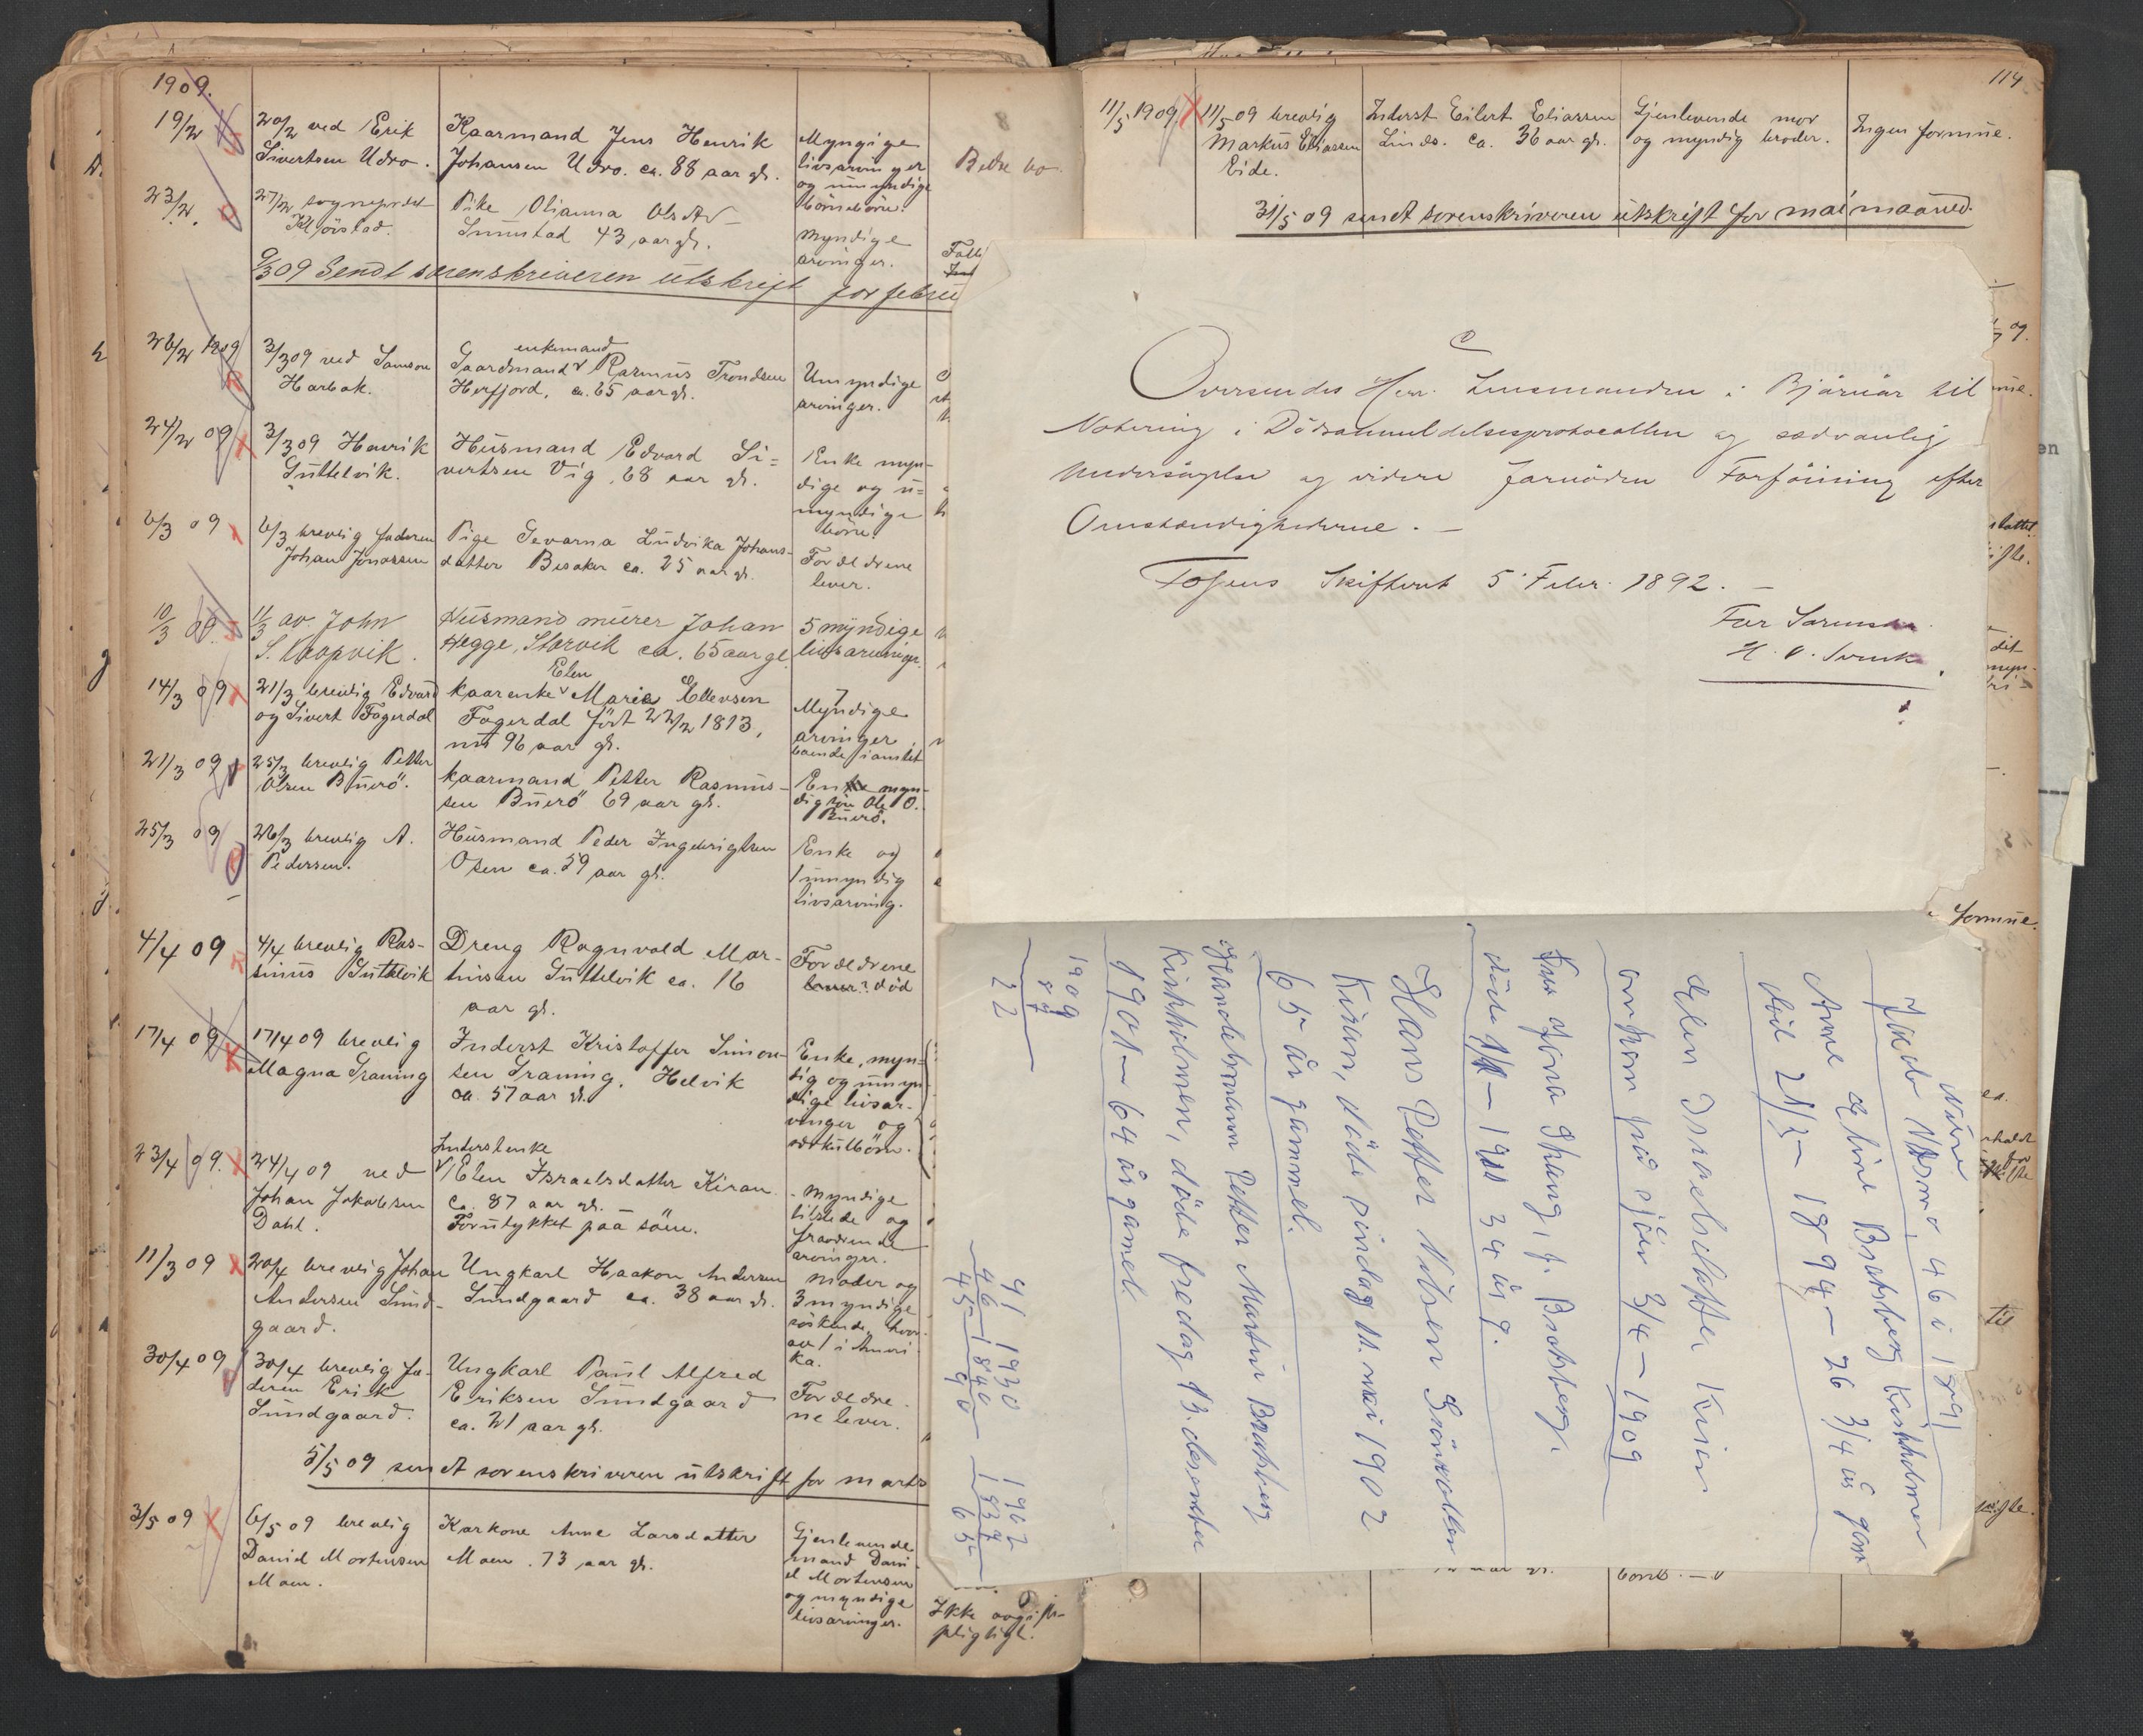 1909.
19/2
20/2 ved Erik
Sivertsen Udro.
Kaarmand Jens Henrik
Johansen Udro. ca. 88 aar gl.
Myngige
livsarvinger
og umyndige
börnebörn.
23/2.
27/2 sogneprest
Pike Olianna Olsdtr
Sumstad 43 aar gl.
Myndige
arvinger.
9/3 09 Sendt sorenskriveren utskrift for febru
26/2 1909
3/3 09 ved Samson
Harbak.
enkemand
Gaardmand Rasmus Trondsen
Hopfjord, ca. 65 aar gl.
Umyndige
arvinger.
24/2 09
3/3 09 Henrik
Suttelvik.
Husmand Edvard Si=
vertsen Vig, 68 aar gl.
Enke myn-
dige og u=
myndige
börn.
6/3 09
6/3 brevlig faderen
Johan Jonassen
Pige Gevarna Ludvika Johans-
datter Besaker ca. 25 aar gl.
Forældrene
lever.
10/3 09.
11/3 av John
S. Kropvik.
Husmand murer Johan
Hegge, Storvik ca. 65 aar gl.
5 myndige
livsarvinger.
14/3 09
21/3 brevlig Edvard
og Sivert Fagerdal
Elen
Kaarenke Marie Ellevsen
Fagerdal født 22/2 1813,
nu 96 aar gl.
7
Myndige
arvinger,
boende i amtet
21/3 09
25/3 brevlig Petter
Olsen Buerö.
Kaarmand Petter Rasmus-
sen Buerö 69 aar gl.
Enke myn-
dig sön Ole O.
Buerö.
25/3 09
26/3 brevlig A.
Pedersen.
Husmand Peder Ingebrigtsen
Osen ca. 59 aar gl.
Enke og
1 umyndig
livsarving.
4/4 09
4/4 brevlig Ras-
minus Suttelvik
Dreng Ragnvald Mar-
tinsen Suttelvik ca. 16
aar gl.
Forældrene
lever? død
17/4 09
17/4 09 brevlig
Magna Graning
Inderst Kristoffer Simon-
sen Graning, Helvik
ca. 57 aar gl.
Enke, myn-
dig og umyn-
dige livsar-
vinger og
særkulbörn.
23/4 09.
24/4 09 ved
Johan Jakobsen
Dahl.
Inderstenke
Elen Israelsdatter Kiran
ca. 87 aar gl. -
Forulykket paa söen.
Myndige
tilstede og
fraværende
arvinger.
11/3 09
20/4 brevlig Johan
Andersen Sund-
gaard.
Ungkarl Haakon Andersen
Sundgaard ca. 38 aar gl.
Moder og
3 myndige
söskende, hvor-
av 1 i Ameri
ka.
30/4 09
30/4 brevlig fa-
deren Erik
Sundgaard.
Ungkarl Paul Alfred
Eriksen Sundgaard
ca. 21 aar gl.
Forældre-
ne lever.
5/5 09 sendt sorenskriveren utskrift for marts
3/5 09
6/5 09 brevlig
David Mortensen
Moen.
Karkone Anne Larsdatter
Moen. 73 aar gl.
Gjenlevende
mand Dani
el Mortensen
og myndige
livsarvinger.
Ikke avgifts-
pligtigt.
114
11/5 1909
11/5 09 brevlig
Markus Eliassen
Eide.
Inderst Eilert Eliassen
Linds. ca. 36 aar gl.
Gjenlevende mor
og myndig broder.
Ingen formue.
31/5 09 sendt sorenskriveren utskrift for mai maaned.
Oversendes Herr Lensmanden i Bjørnør til
Notering i Dødsanmeldelsesprotocollen og sædvanlig
Undersøgelse og videre fornöden Forföining efter
Omstændighederne. -
Fosens Skifteret 5 Febr. 1892. -
For Sorensk
Jakob 46 i 1891
Anne Eline Bratsberg Kirkholmen
död 21/3 - 1894 - 26 3/4 år gam
Elen Israelsdatter Kiran
omkom på sjöen 3/4 - 1909
Fru Anna Skang, f. Bratsberg.
döde 34 år g.
Hans Petter Nilsen Grönvollen
Kiran, döde söndag 11. mai 1902
65 år gammel.
Handelsmann Petter Martin Bratsberg
Kirkholmen, döde fredag 13. desember
1901 - 64 år gamel.
1909
887
22
41 1930
46 - 1840
45 - 90
1902
1837
65